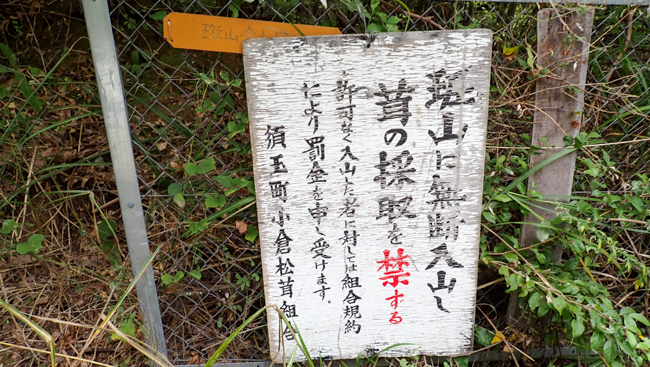 斑山に無断入山し
茸の採取を禁ずる
許可なく入山した者に対しては組合規約
により罰金を申し受けます。
須玉町小倉松茸組合
斑山